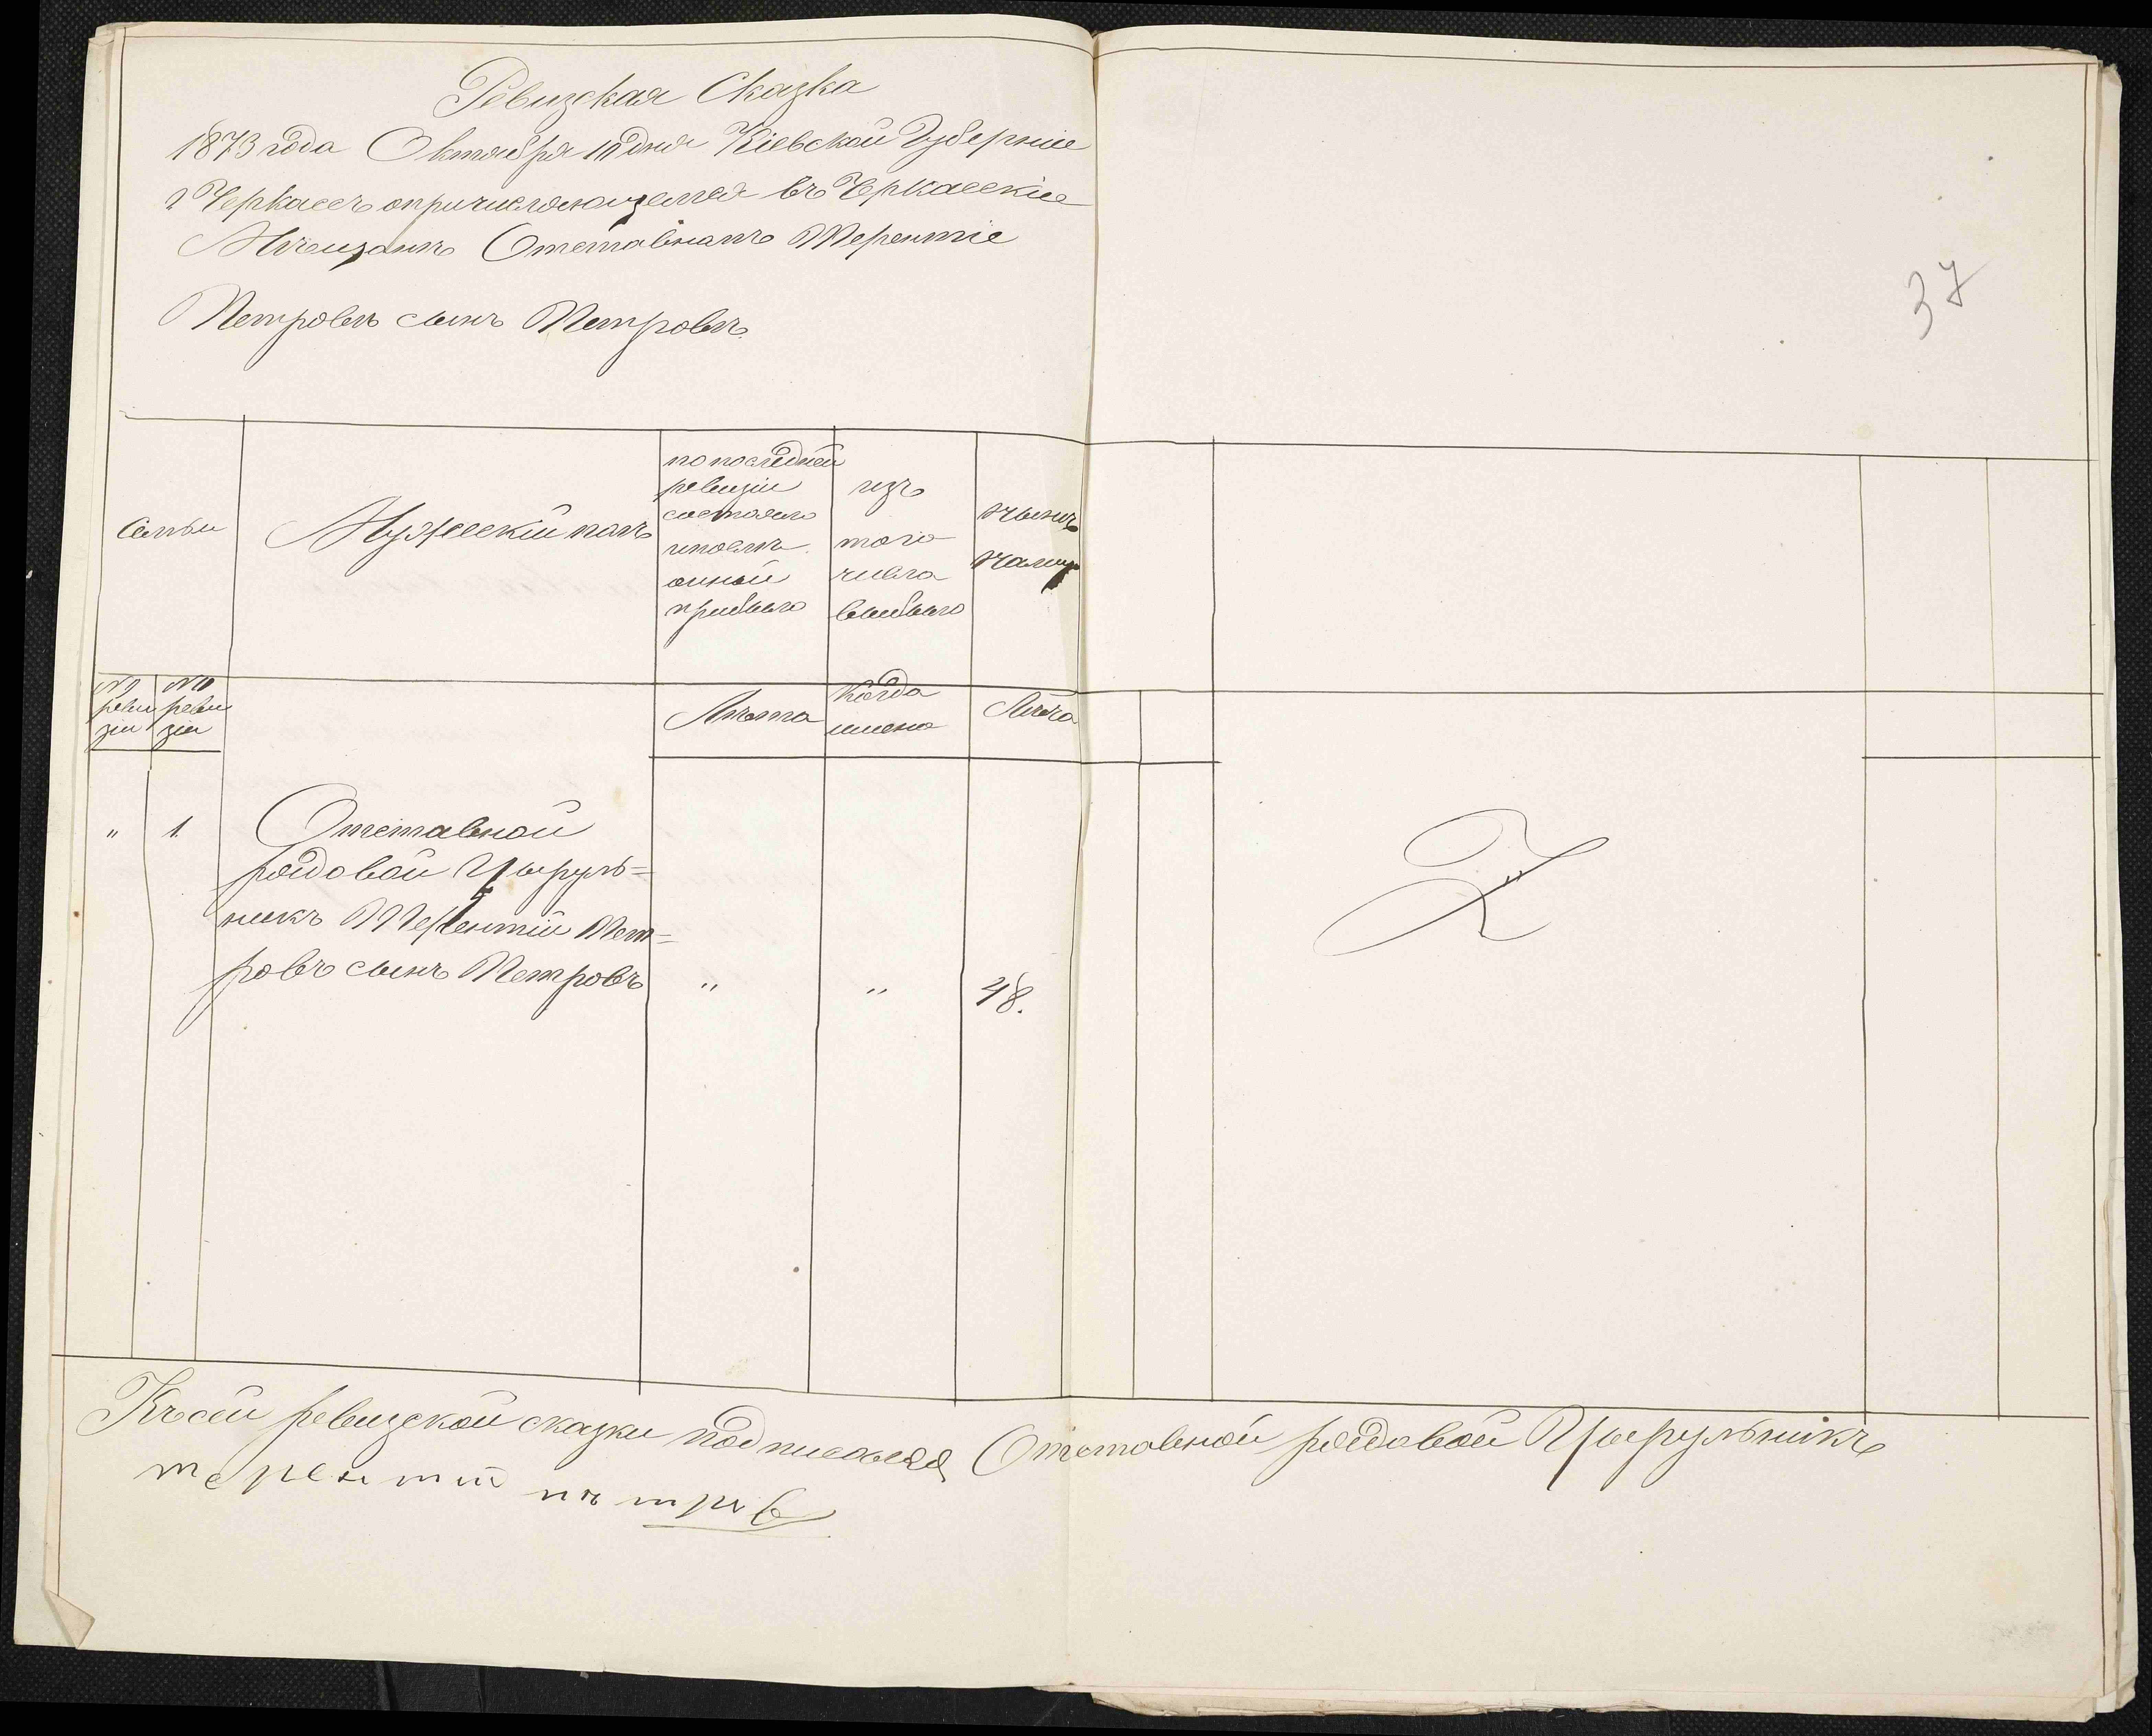 Ревизская Сказка
1873 года Октября 10 дня Кіевской Губерніи
г Черкассъ опричисляющемся въ Черкасскіе
Мѣщанъ Отставномъ Терентіе
Петровѣ сынъ Петровѣ
37
Семьи
Мужескій полъ
по последней
ревизіи
состояло
и послѣ
оной
прибыло
изъ
того
числа
выбыло
нынѣ
на лицо
№ ревизіи
№ ревизіи
Лѣта
Когда
именно
Лѣта
" 1. Отставной
рядовой Цырулъ=
никъ Терентій Пет=
ровъ сынъ Петровъ " " 48.
Къ сей ревизской сказки подписался Отставной рядовой Цырульникъ
терентий петров